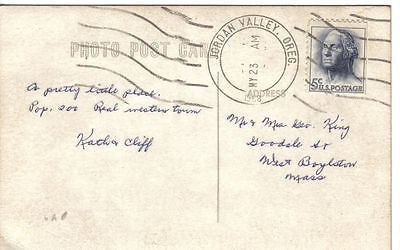 PHOTO POST CARD
JORDAN VALLEY, OREG.
AM
MY 23
1968
ADDRESS
5¢
U.S. POSTAGE
A pretty little place.
Pop. 200 Real western town
Kath & Cliff
Mr & Mrs Geo. King
Goodale St
West Boylston
Mass